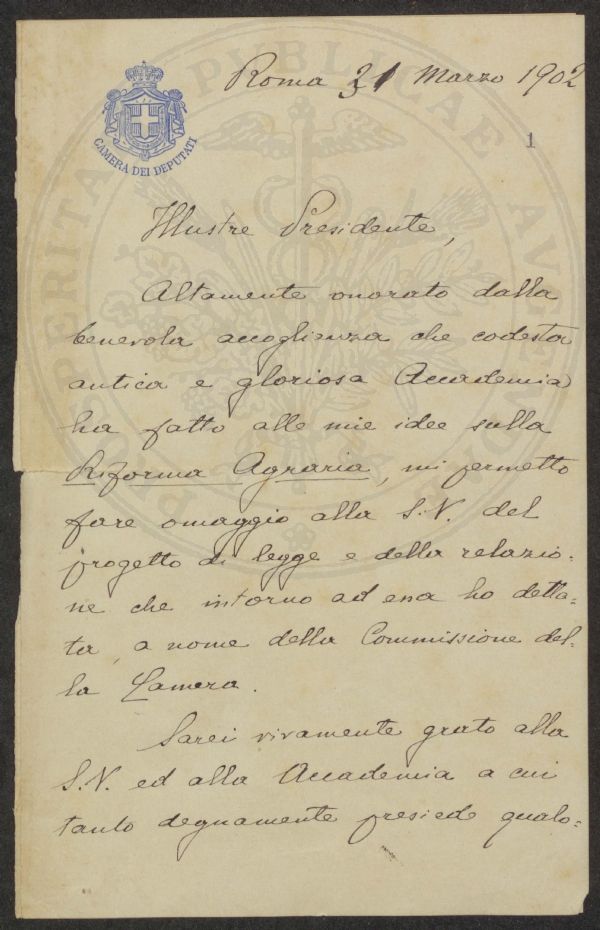 Roma 31 Marzo 1902
CAMERA DEI DEPUTATI
1
Illustre Presidente,
Altamente onorato dalla
benevola accoglienza che codesta
antica e gloriosa Accademia
ha fatto alle mie idee sulla
Riforma Agraria, mi permetto
fare omaggio alla S.V. del
progetto di legge e della relazio=
ne che intorno ad essa ho detta=
ta, a nome della Commissione del=
la Camera.
Sarei vivamente grato alla
S.V. ed alla Accademia a cui
tanto degnamente presiede qualo=
PROSPERITATI PUBLICAE AUGENDAE